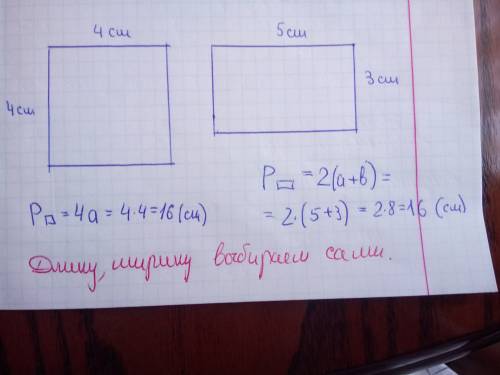 4 см
5 см
4 см
3 см
P□ = 4a = 4·4=16 (см)
P▭ = 2(a+b) =
= 2·(5+3) = 2·8=16 (см)
Длину, ширину выбираем сами.